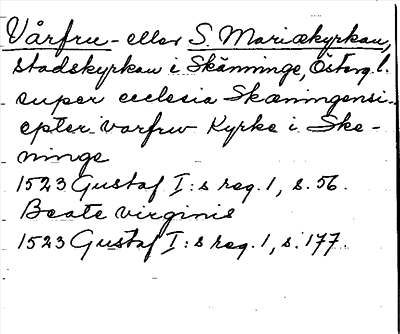 Vårfru- eller S. Mariækyrkan,
stadskyrkan i Skänninge, Österg. l.
super ecclesia Skæningensi..
epter varfrw Kyrke i Ske-
ninge
1523 Gustaf I:s reg. 1, s. 56.
Beate virginis
1523 Gustaf I:s reg. 1, s. 177.